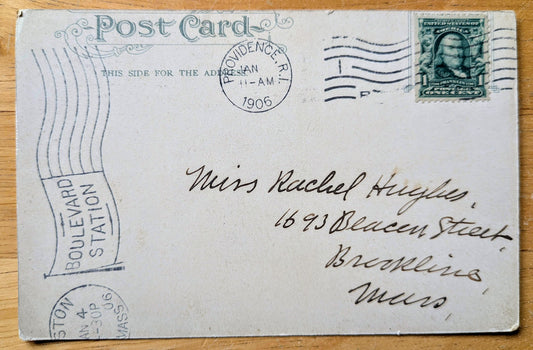 Post Card
THIS SIDE FOR THE ADDRESS
PROVIDENCE, R.I.
JAN
11-AM
1906
UNITED STATES OF
AMERICA
FRANKLIN
POSTAGE
ONE CENT
Miss Rachel Hughes,
1693 Beacon Street,
Brookline,
Mass,
BOULEVARD
STATION
STON
AN 4
-30P
06
MASS